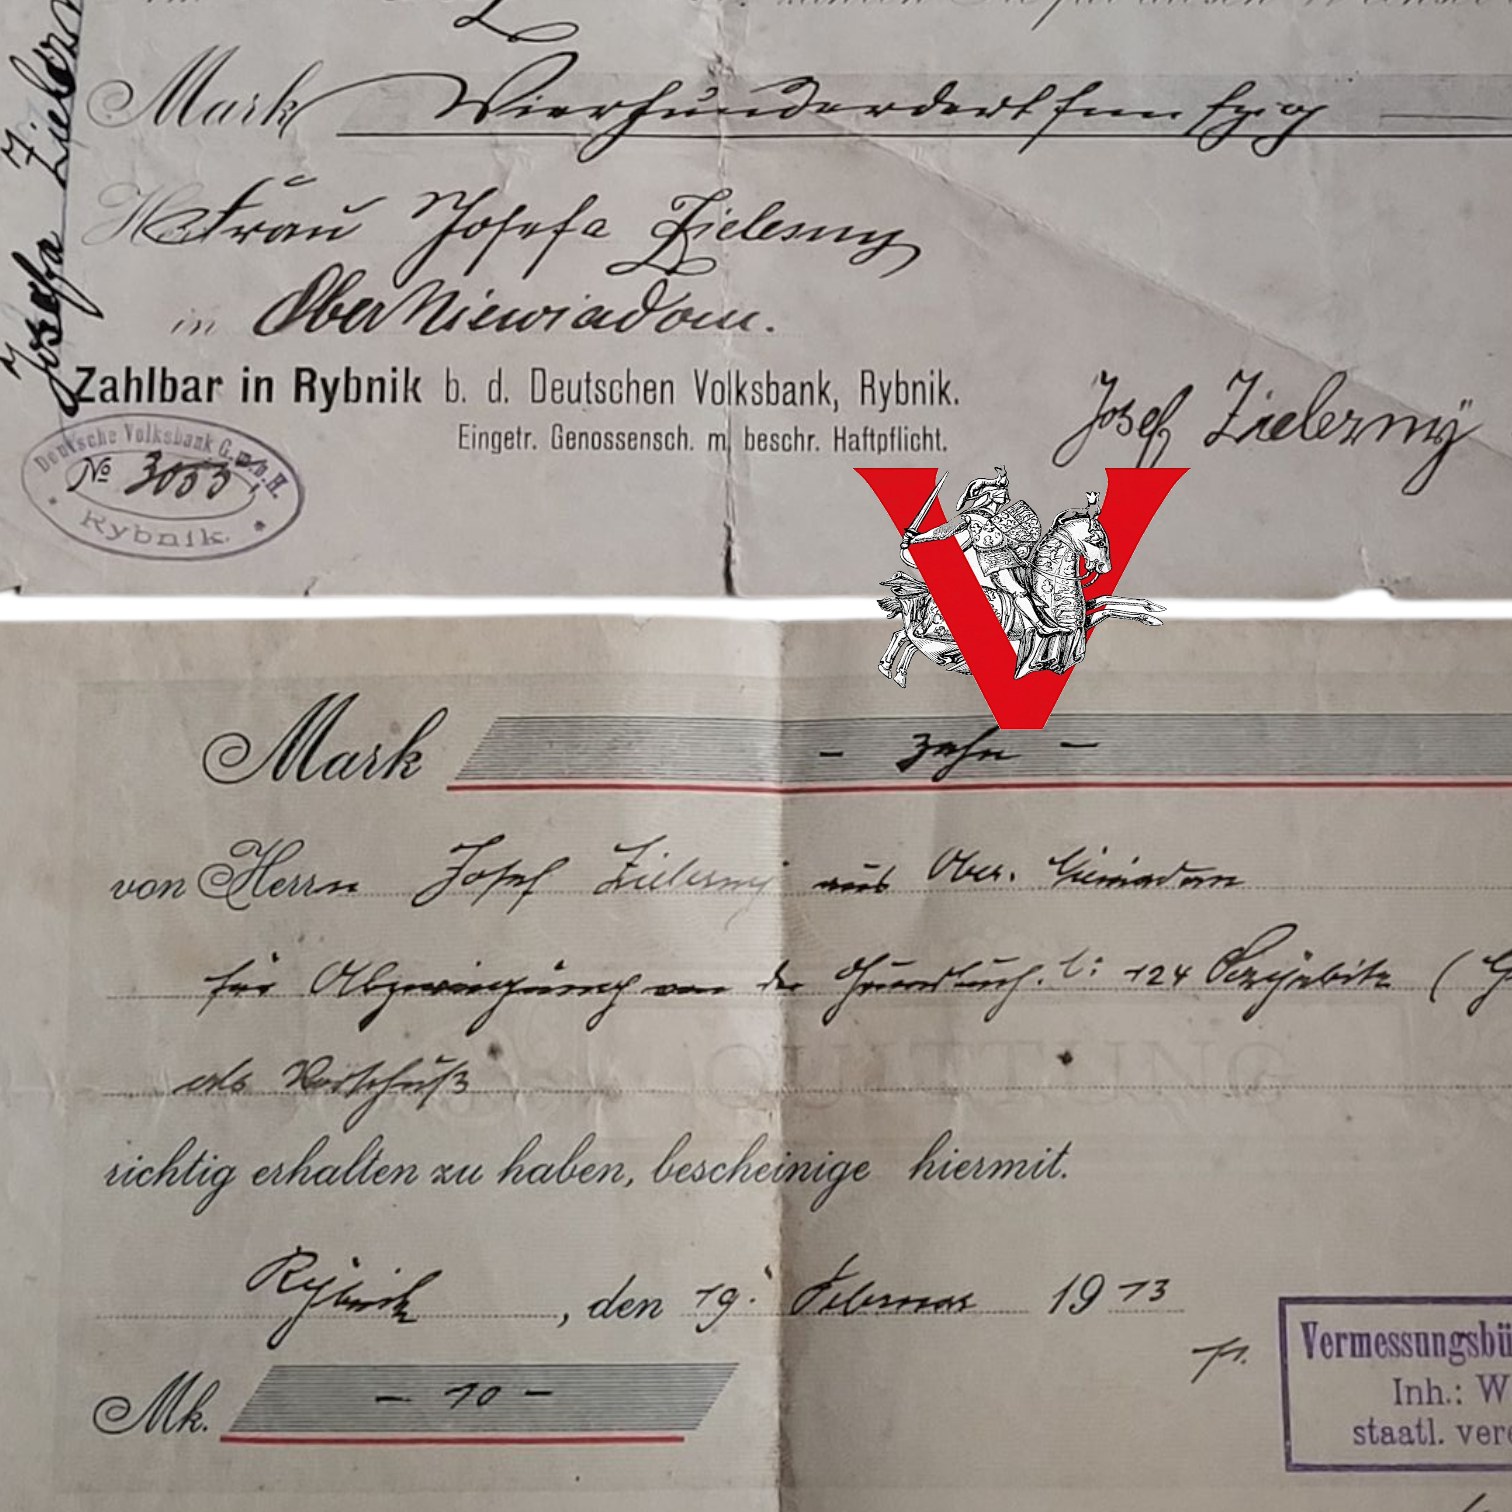 Mark Vierhundertfünfzig
Frau Josefa Zielezny
in Ober Niewiadom.
Zahlbar in Rybnik b. d. Deutschen Volksbank, Rybnik.
Eingetr. Genossensch. m. beschr. Haftpflicht.
Josef Zielezny
Josefa
Deutsche Volksbank G.m.b.H.
No 3053
Rybnik.
V
Mark - zehn -
von Herrn Josef Zielezny aus Ober. Niewiadom
für Abzweigung von der Grundbuch. 124
als Vorschuß
QUITTUNG
richtig erhalten zu haben, bescheinige hiermit.
Rybnik, den 19. Februar 1913
Mk. - 10 -
Vermessungsbü
Inh.: W
staatl. vere